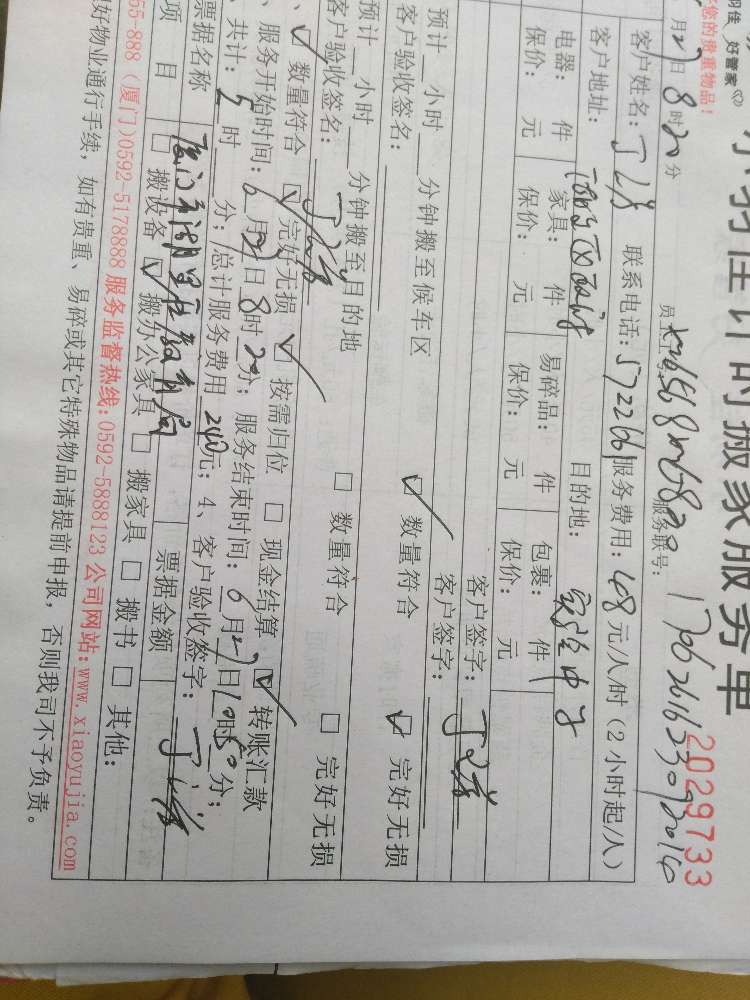 好管家
您的贵重物品！
小羽佳计时搬家服务单
2029733
月27日8时20分 服务联号：
客户姓名： 联系电话：5722661 服务费用：48元/人/时（2小时起/人）
客户地址： 目的地：
电器： 件 家具： 件 易碎品： 件 包裹： 件
保价： 元 保价： 元 保价： 元 保价： 元
客户签字：
客户签字：
预计__小时__分钟搬至候车区 数量符合 完好无损
客户验收签名：
预计__小时__分钟搬至目的地 数量符合 完好无损
客户验收签名：
数量符合 完好无损 按需归位 现金结算 转账汇款
服务开始时间：6月27日8时20分；服务结束时间：6月27日10时50分；
共计：5时__分；总计服务费用240元；4、客户验收签字：
票据名称 厦门市湖里区教育局 票据金额
项目 搬设备 搬办公家具 搬家具 搬书 其他：
55-888（厦门）0592-5178888 服务监督热线：0592-5888123 公司网站：www.xiaoyujia.com
好物业通行手续，如有贵重、易碎或其它特殊物品请提前申报，否则我司不予负责。